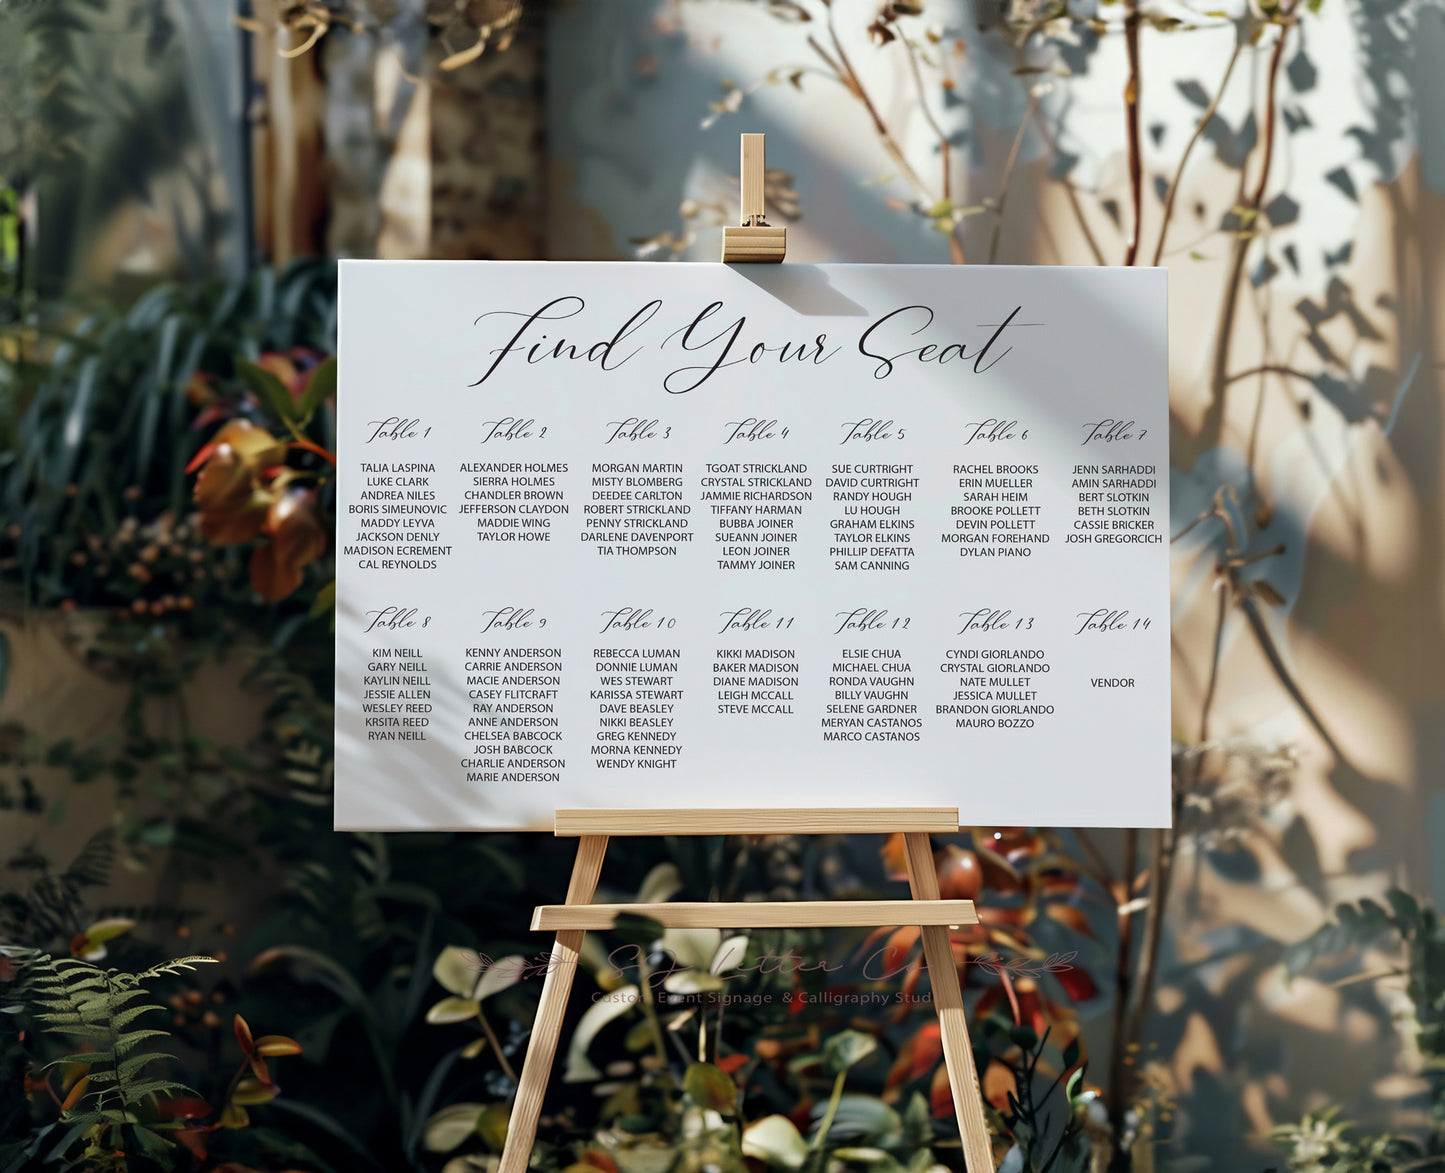 Find Your Seat
Table 1
TALIA LASPINA
LUKE CLARK
ANDREA NILES
BORIS SIMEUNOVIC
MADDY LEYVA
JACKSON DENLY
MADISON ECREMENT
CAL REYNOLDS
Table 2
ALEXANDER HOLMES
SIERRA HOLMES
CHANDLER BROWN
JEFFERSON CLAYDON
MADDIE WING
TAYLOR HOWE
Table 3
MORGAN MARTIN
MISTY BLOMBERG
DEEDEE CARLTON
ROBERT STRICKLAND
PENNY STRICKLAND
DARLENE DAVENPORT
TIA THOMPSON
Table 4
TGOAT STRICKLAND
CRYSTAL STRICKLAND
JAMMIE RICHARDSON
TIFFANY HARMAN
BUBBA JOINER
SUEANN JOINER
LEON JOINER
TAMMY JOINER
Table 5
SUE CURTRIGHT
DAVID CURTRIGHT
RANDY HOUGH
LU HOUGH
GRAHAM ELKINS
TAYLOR ELKINS
PHILLIP DEFATTA
SAM CANNING
Table 6
RACHEL BROOKS
ERIN MUELLER
SARAH HEIM
BROOKE POLLETT
DEVIN POLLETT
MORGAN FOREHAND
DYLAN PIANO
Table 7
JENN SARHADDI
AMIN SARHADDI
BERT SLOTKIN
BETH SLOTKIN
CASSIE BRICKER
JOSH GREGORCICH
Table 8
KIM NEILL
GARY NEILL
KAYLIN NEILL
JESSIE ALLEN
WESLEY REED
KRSITA REED
RYAN NEILL
Table 9
KENNY ANDERSON
CARRIE ANDERSON
MACIE ANDERSON
CASEY FLITCRAFT
RAY ANDERSON
ANNE ANDERSON
CHELSEA BABCOCK
JOSH BABCOCK
CHARLIE ANDERSON
MARIE ANDERSON
Table 10
REBECCA LUMAN
DONNIE LUMAN
WES STEWART
KARISSA STEWART
DAVE BEASLEY
NIKKI BEASLEY
GREG KENNEDY
MORNA KENNEDY
WENDY KNIGHT
Table 11
KIKKI MADISON
BAKER MADISON
DIANE MADISON
LEIGH MCCALL
STEVE MCCALL
Table 12
ELSIE CHUA
MICHAEL CHUA
RONDA VAUGHN
BILLY VAUGHN
SELENE GARDNER
MERYAN CASTANOS
MARCO CASTANOS
Table 13
CYNDI GIORLANDO
CRYSTAL GIORLANDO
NATE MULLET
JESSICA MULLET
BRANDON GIORLANDO
MAURO BOZZO
Table 14
VENDOR
Letter Co
Custom Event Signage & Calligraphy Stud